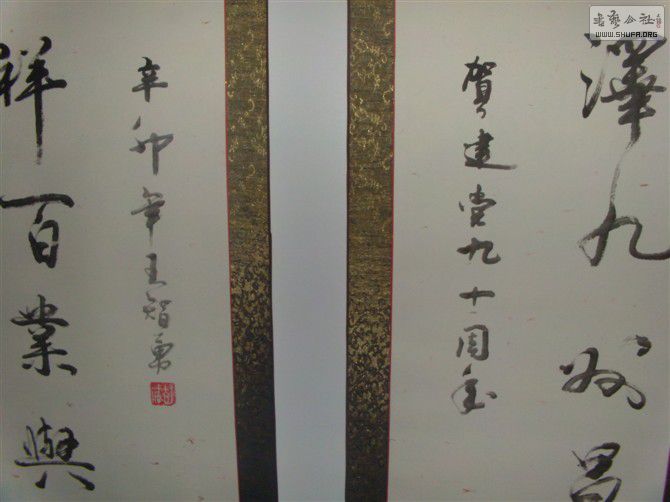 澤九州昌
賀建党九十周年
祥百業興
辛卯年王智勇
书艺公社
WWW.SHUFA.ORG